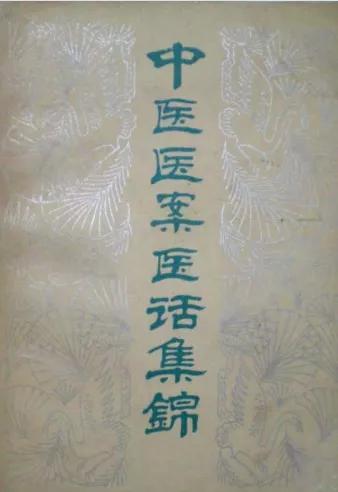 中医医案医话集錦